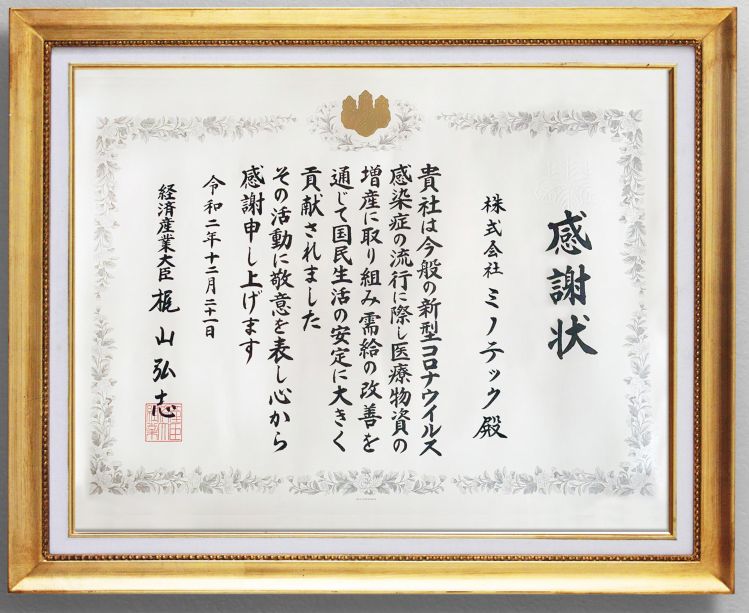 感謝状
株式会社ミノテック殿
貴社は今般の新型コロナウイルス
感染症の流行に際し医療物資の
増産に取り組み需給の改善を
通じて国民生活の安定に大きく
貢献されました
その活動に敬意を表し心から
感謝申し上げます
令和二年十二月二十一日
経済産業大臣 梶山弘志